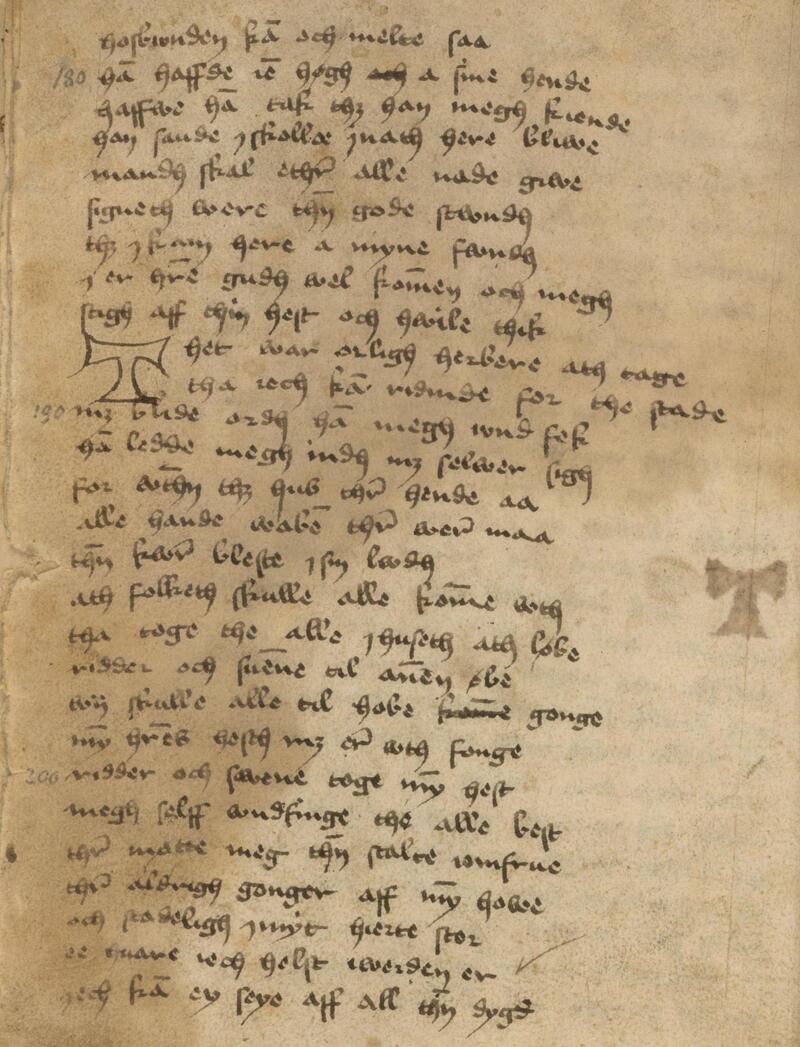 hosbonden kā och melte saa
180 hā haffde iē högh a sine hende
haffwe hā tak thȝ han megh kiende
han saude j skollæ jnath here bliwe
mandh skal ethr̄ alle nade giwe
signeth were thn̄ gode stwndh
thȝ j kam here a myne fwndh
j er hr̄e gudh wel kom̄en och megh
stigh aff thin hest och hwile thik
Thet war orligh herbere ath tage
tha iech kā ridinde for the stade
190 mȝ blide ordh hā megh wnd fek
hā ledde megh indh mȝ selwer sigh
for wthn̄ thȝ hus thr̄ hende aa
alle hande wabē thr̄ wer̄ maa
thn̄ kwr̄ bleste j sin lwdh
ath folketh skulle alle kom̄e wth
tha toge the alle j huseth ath løbe
ridder och suen̄e til an̄en øbe
wij skulle alle til hobe gonge
mȳ hr̄es hesth mȝ er̄ wth fonge
200 ridder och swene toge mȳ hest
megh selff wndfinge the alle best
thr̄ møtte meg thn̄ stalte iomfrue
thr̄ aldrigh gonger aff mȳ howe
och stadeligh j myt hierte stor
ee hware iech helst i werden er
iech kā ey seye aff all thn̄ dygd